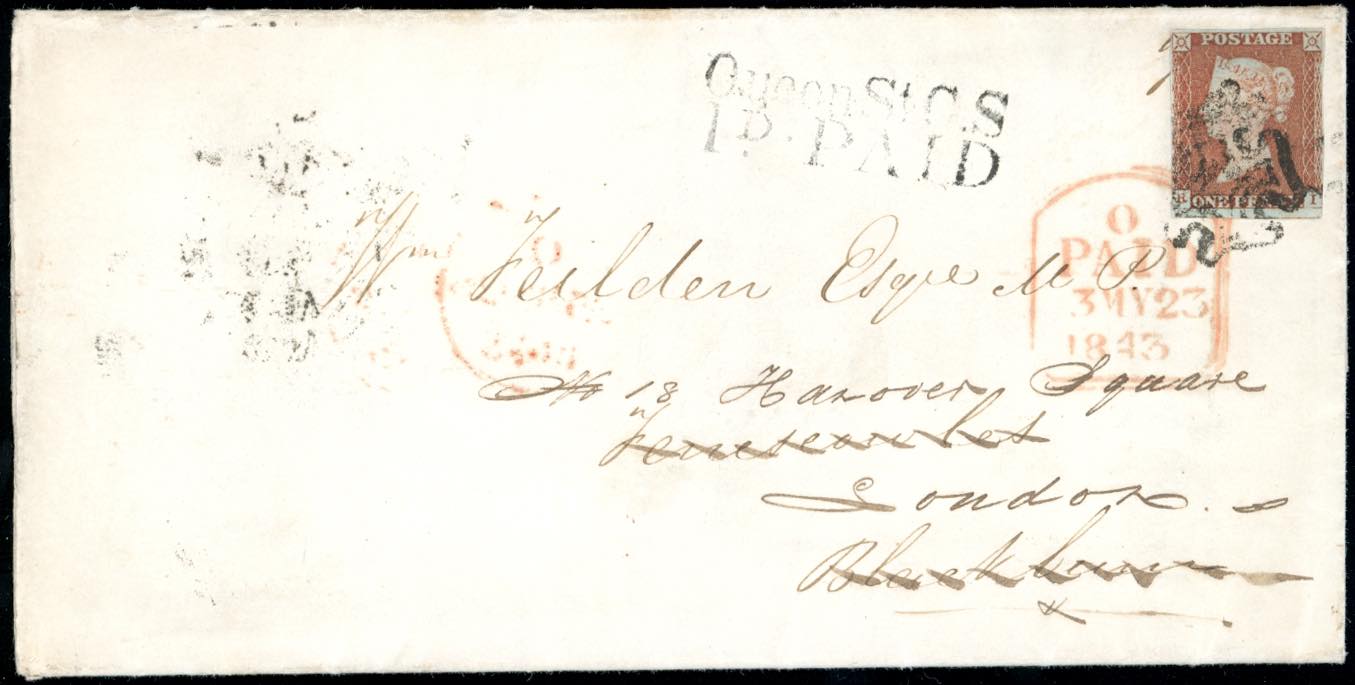 POSTAGE
R ONE PENNY I
Queen St C S
1 D. PAID
O
PAID
3MY23
1843
Wm Feilden Esqre M P.
No 18 Hanover Square
London.
Blackburn